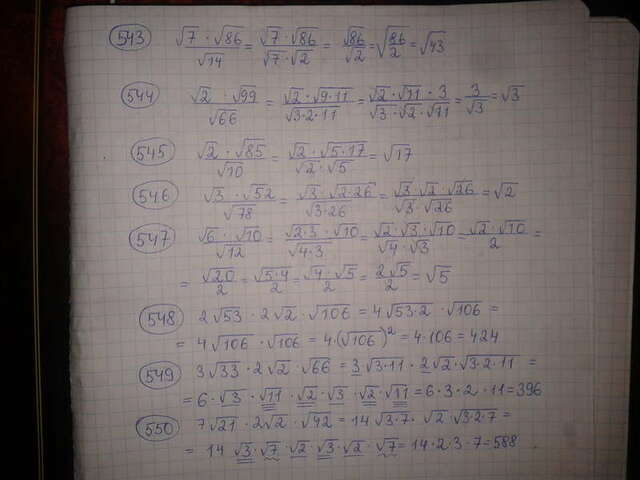 543 √7 · √86 / √14 = √7 · √86 / √7 · √2 = √86 / √2 = √86/2 = √43
544 √2 · √99 / √66 = √2 · √9·11 / √3·2·11 = √2 · √11 · 3 / √3 · √2 · √11 = 3/√3 = √3
545 √2 · √85 / √10 = √2 · √5·17 / √2 · √5 = √17
546 √3 · √52 / √78 = √3 · √2·26 / √3·26 = √3 · √2 · √26 / √3 · √26 = √2
547 √6 · √10 / √12 = √2·3 · √10 / √4·3 = √2 · √3 · √10 / √4 · √3 = √2 · √10 / 2 =
= √20 / 2 = √5·4 / 2 = √4 · √5 / 2 = 2√5 / 2 = √5
548 2√53 · 2√2 · √106 = 4√53·2 · √106 =
= 4√106 · √106 = 4·(√106)² = 4·106 = 424
549 3√33 · 2√2 · √66 = 3√3·11 · 2√2 · √3·2·11 =
= 6 · √3 · √11 · √2 · √3 · √2 · √11 = 6·3·2·11 = 396
550 7√21 · 2√2 · √42 = 14√3·7 · √2 · √3·2·7 =
= 14 √3 · √7 · √2 √3 · √2 · √7 = 14·2·3·7 = 588